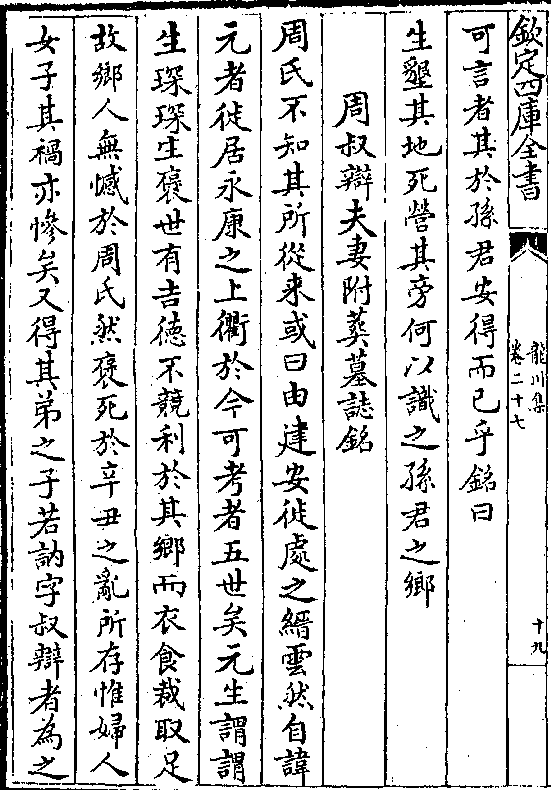 欽定四庫全書
龍川集
卷二十七
十九
可言者其於孫君安得而已乎銘曰
生墾其地死營其旁何以識之孫君之鄉
周叔辯夫妻附葬墓誌銘
周氏不知其所從来或曰由建安徙處之縉雲然自諱
元者徙居永康之上衢於今可考者五世矣元生謂謂
生琛琛生襃世有吉徳不競利於其鄉而衣食裁取足
故鄉人無憾於周氏然襃死於辛丑之亂所存惟婦人
女子其禍亦慘矣又得其弟之子若訥字叔辯者為之